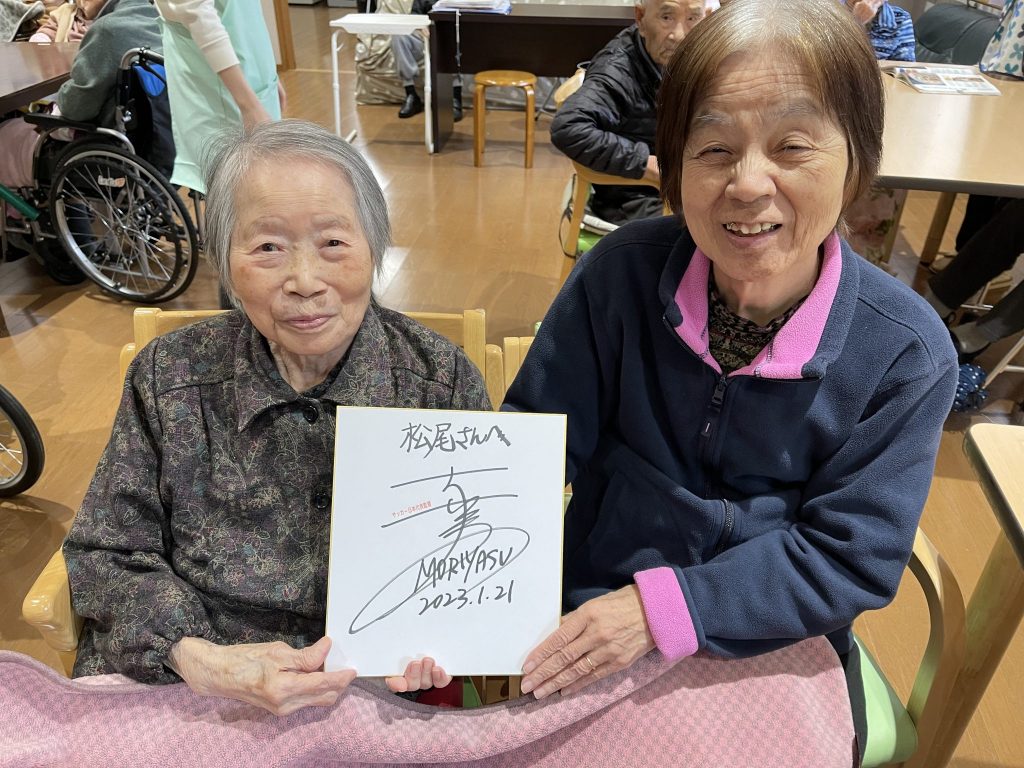 松尾さんへ
サッカー日本代表監督
MORIYASU
2023.1.21